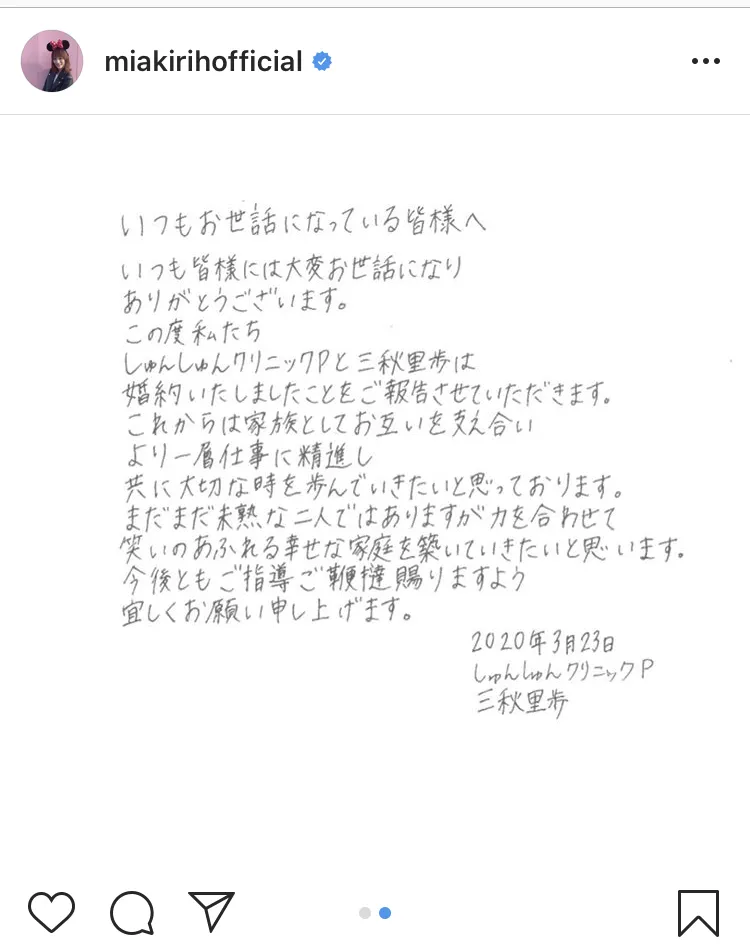 miakirihofficial
いつもお世話になっている皆様へ
いつも皆様には大変お世話になり
ありがとうございます。
この度私たち
しゅんしゅんクリニックPと三秋里歩は
婚約いたしましたことをご報告させていただきます。
これからは家族としてお互いを支え合い
より一層仕事に精進し
共に大切な時を歩んでいきたいと思っております。
まだまだ未熟な二人ではありますが力を合わせて
笑いのあふれる幸せな家庭を築いていきたいと思います。
今後ともご指導ご鞭撻賜りますよう
宜しくお願い申し上げます。
2020年3月23日
しゅんしゅんクリニックP
三秋里歩